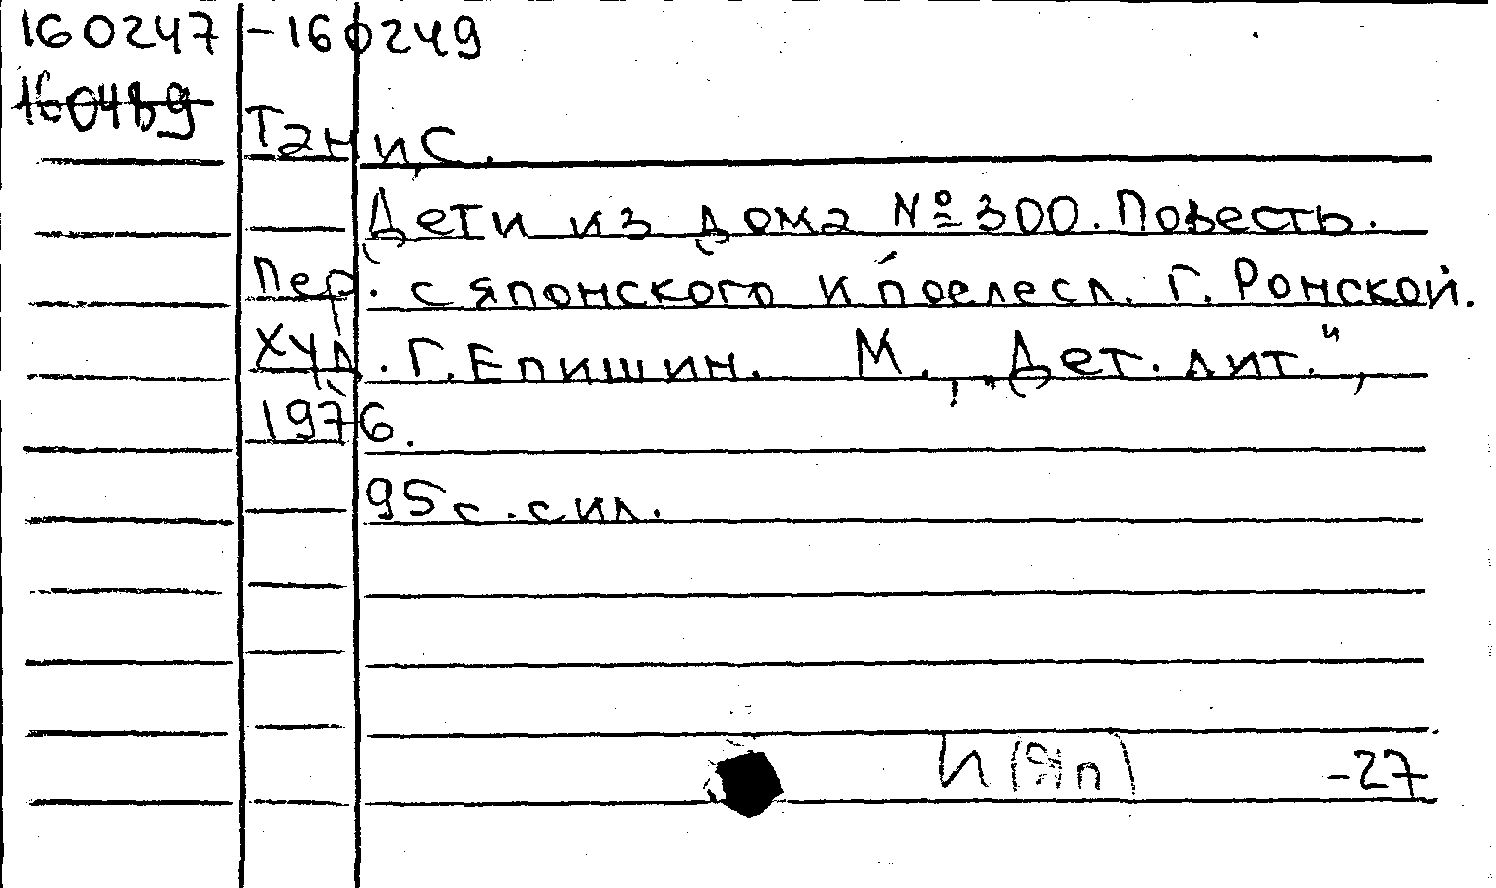 160247 - 160249
160489
Тани, С.
Дети из дома № 300. Повесть.
Пер. с японского и послесл. Г. Ронской.
Худ. Г. Епишин. М., „Дет. лит.",
1976.
95 с. с ил.
И(Яп) -27